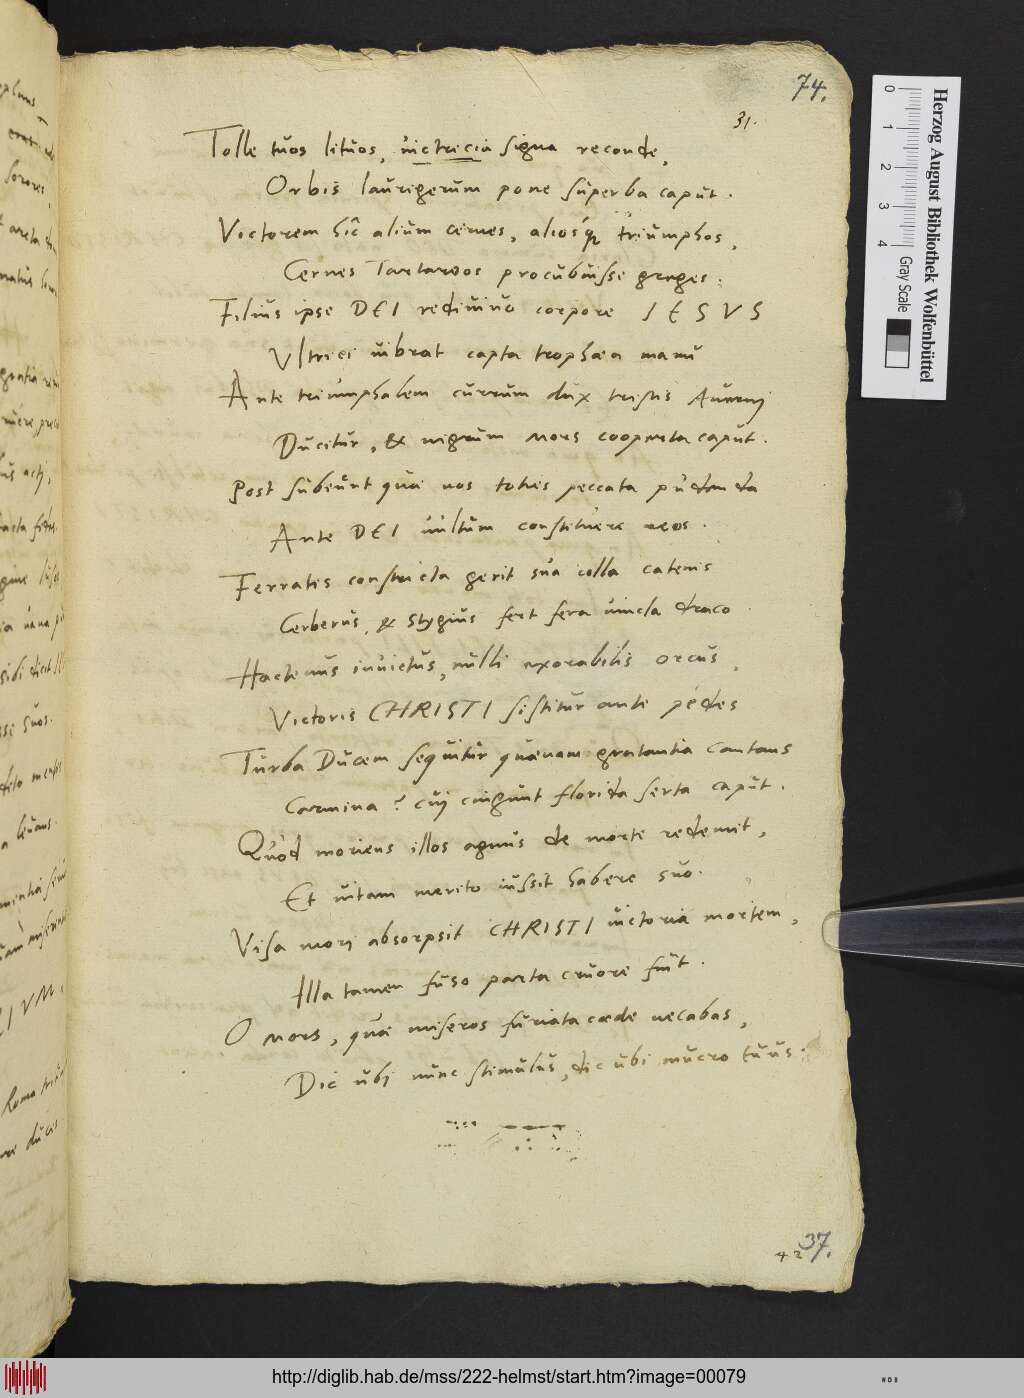 74.
31.
Tolle tuos lituos, victricia signa reconde,
Orbis laurigerum pone superba caput.
Victorem hîc alium cernes, aliosq́ꝫ triumphos,
Cernes Tartareos procubuisse greges:
Filius ipse DEI rediuiuo corpore IESVS
Vltrici uibrat capta trophæa manu
Ante triumphalem currum dux tristis Auerni
Ducitur, & nigrum mors cooperta caput.
Post subeunt quæ nos toties peccata pudenda
Ante DEI uultum constituere reos.
Ferratis constricta gerit sua colla catenis
Cerberus, & Stygius fert fera uincla draco.
Hactenus inuictus, nulli exorabilis orcus,
Victoris CHRISTI sistitur ante pedes
Turba Ducem sequitur quænam gratantia cantans
Carmina? cui cingunt florida serta caput.
Quòd moriens illos agnus de morte redemit,
Et uitam merito iussit habere suo.
Visa mori absorpsit CHRISTI uictoria mortem,
Illa tamen fuso parta cruore fuit.
O mors, quæ miseros furiata cæde necabas,
Dic ubi nunc stimulus, dic ubi mucro tuus:
37.
42
0
1
2
3
4
Gray Scale
Herzog August Bibliothek Wolfenbüttel
http://diglib.hab.de/mss/222-helmst/start.htm?image=00079